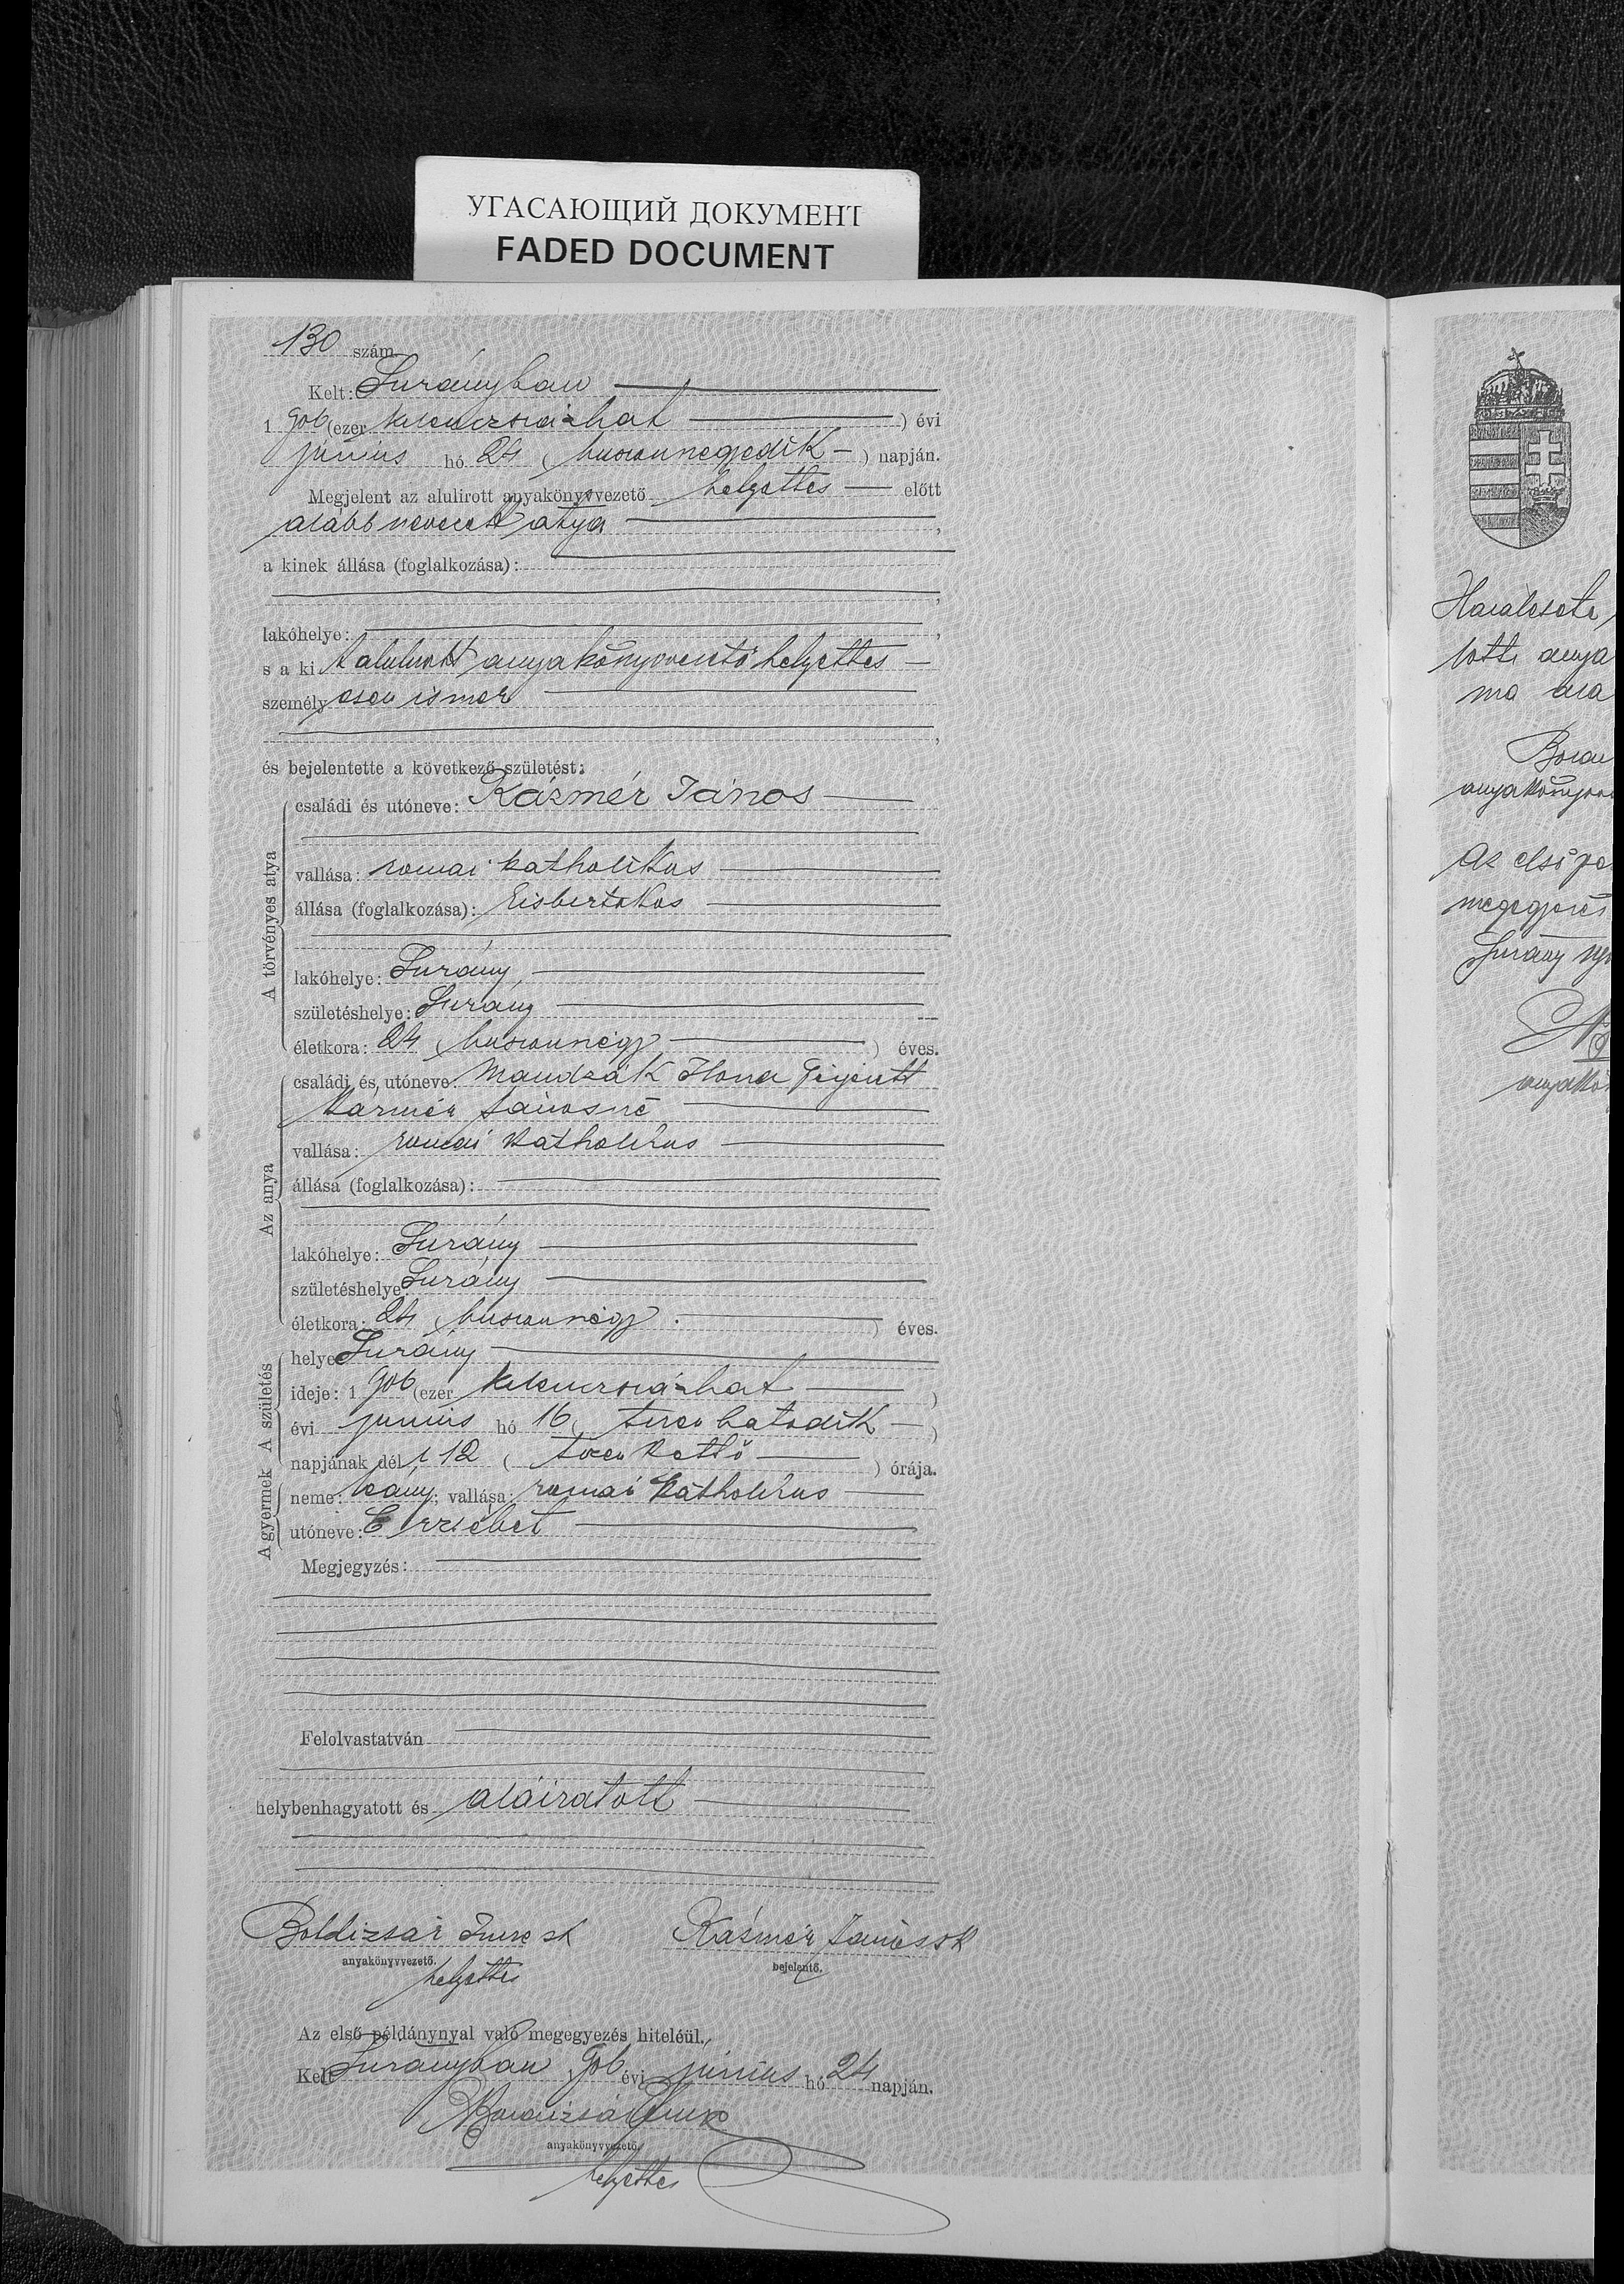 УГАСАЮЩИЙ ДОКУМЕНТ
FADED DOCUMENT
130 szám.
Kelt: Surányban
1 906 (ezer kilenczszázhat) évi
junius hó 24 (huszonnegyedik) napján.
Megjelent az alulirott anyakönyvvezető helyettes előtt
alább nevezett atya,
a kinek állása (foglalkozása):
,
lakóhelye: ,
s a kit alulirott anyakönyvvezető helyettes
személyesen ismer
,
és bejelentette a következő születést:
A törvényes atya
családi és utóneve: Kázmér János
vallása: romai katholikus
állása (foglalkozása): kisbirtokos
lakóhelye: Surány,
születéshelye: Surány
életkora: 24 (huszonnégy) éves.
Az anya
családi és utóneve: Mandzák Ilona férjezett
Kázmér Jánosné
vallása: romai katholikus
állása (foglalkozása):
lakóhelye: Surány
születéshelye: Surány
életkora: 24 (huszonnégy) éves.
A születés
helye: Surány
ideje: 1 906 (ezer kilenczszázhat)
évi junius hó 16 (tizenhatodik)
napjának dél 12 (tizenkettő) órája.
A gyermek
neme: leány; vallása: romai katholikus
utóneve: Erzsébet
Megjegyzés:
Felolvastatván
helybenhagyatott és aláiratott
Boldizsár Imre sk Kázmér János sk
anyakönyvvezető. bejelentő.
helyettes
Az első példánynyal való megegyezés hiteléül.
Kelt Surányban 1 906 évi junius hó 24 napján.
Boldizsár Imre
anyakönyvvezető.
helyettes
anya
ma
anyakönyvv
Az első pé
megegyezés
Surány